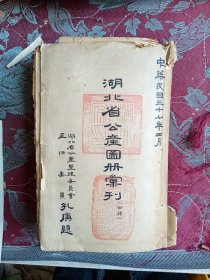 中華民國三十七年四月
湖北省公產圖册彙刊
湖北省公產整理委員會
主任委員孔庚題